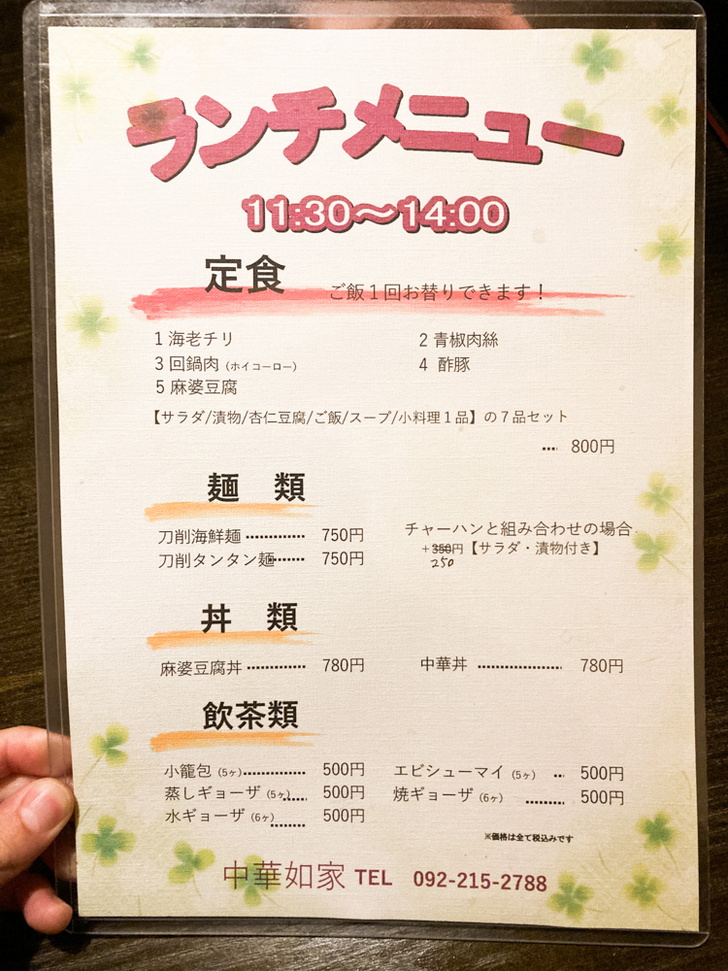 ランチメニュー
11:30～14:00
定食 ご飯1回お替りできます！
1 海老チリ 2 青椒肉絲
3 回鍋肉（ホイコーロー） 4 酢豚
5 麻婆豆腐
【サラダ/漬物/杏仁豆腐/ご飯/スープ/小料理1品】の７品セット
… 800円
麺 類
刀削海鮮麺 ………… 750円 チャーハンと組み合わせの場合
+350円【サラダ・漬物付き】
250
刀削タンタン麺…… 750円
丼 類
麻婆豆腐丼 ………… 780円 中華丼 ………… 780円
飲茶類
小籠包（5ヶ）………… 500円 エビシューマイ（5ヶ） … 500円
蒸しギョーザ（5ヶ）…… 500円 焼ギョーザ（6ヶ） …… 500円
水ギョーザ（6ヶ）…… 500円
※価格は全て税込みです
中華如家 TEL 092-215-2788